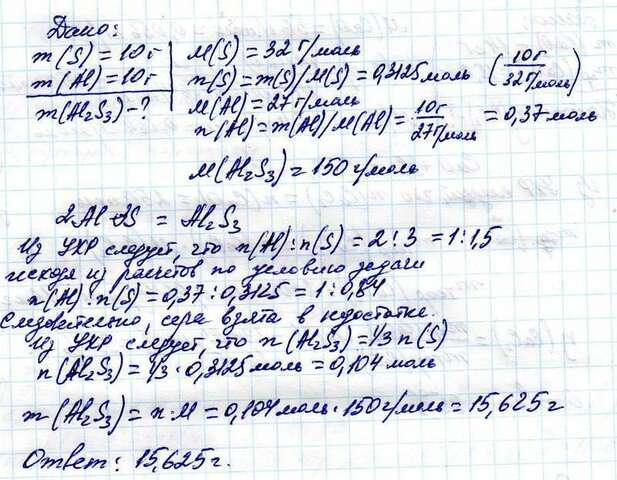 Дано:
m(S) = 10г
m(Al) = 10г
m(Al₂S₃) - ?
M(S) = 32 г/моль
n(S) = m(S)/M(S) = 0,3125 моль (10г/32г/моль)
M(Al) = 27 г/моль
n(Al) = m(Al)/M(Al) = 10г/27г/моль = 0,37 моль
M(Al₂S₃) = 150 г/моль
2Al+3S = Al₂S₃
Из УХР следует, что n(Al):n(S) = 2:3 = 1:1,5
исходя из расчетов по условию задачи
n(Al):n(S) = 0,37:0,3125 = 1:0,84
Следовательно, сера взята в недостатке.
Из УХР следует, что n(Al₂S₃) = 1/3 n(S)
n(Al₂S₃) = 1/3 · 0,3125 моль = 0,104 моль
m(Al₂S₃) = n·M = 0,104 моль · 150 г/моль = 15,625 г
Ответ: 15,625 г.